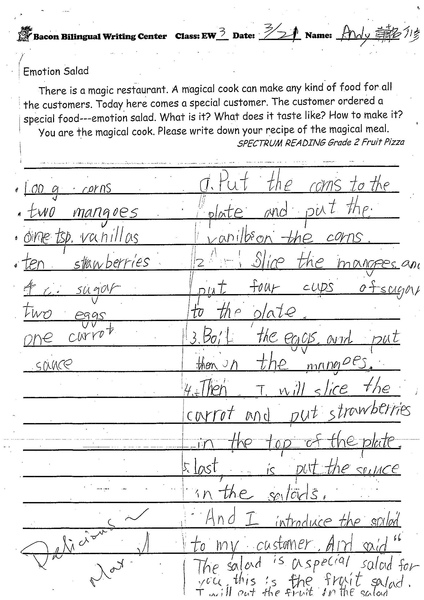 Bacon Bilingual Writing Center Class: EW 3 Date: 3/21 Name: Andy
Emotion Salad
There is a magic restaurant. A magical cook can make any kind of food for all
the customers. Today here comes a special customer. The customer ordered a
special food---emotion salad. What is it? What does it taste like? How to make it?
You are the magical cook. Please write down your recipe of the magical meal.
SPECTRUM READING Grade 2 Fruit Pizza
• 100 g corns
• two mangoes
• one tsp. vanillas
• ten strawberries
4 c. sugar
two eggs
one carrot
sauce
1. Put the corns to the
plate and put the
vanillas on the corns.
2. Slice the mangoes and
put four cups of sugar
to the plate.
3. Boil the eggs and put
them on the mangoes.
4. Then I will slice the
carrot and put strawberries
in the top of the plate.
5. last, is put the sauce
in the salads.
And I introduce the salad
to my customer. And said "
The salad is a special salad for
you, this is the fruit salad.
I will put the fruit in the salad
Delicious~